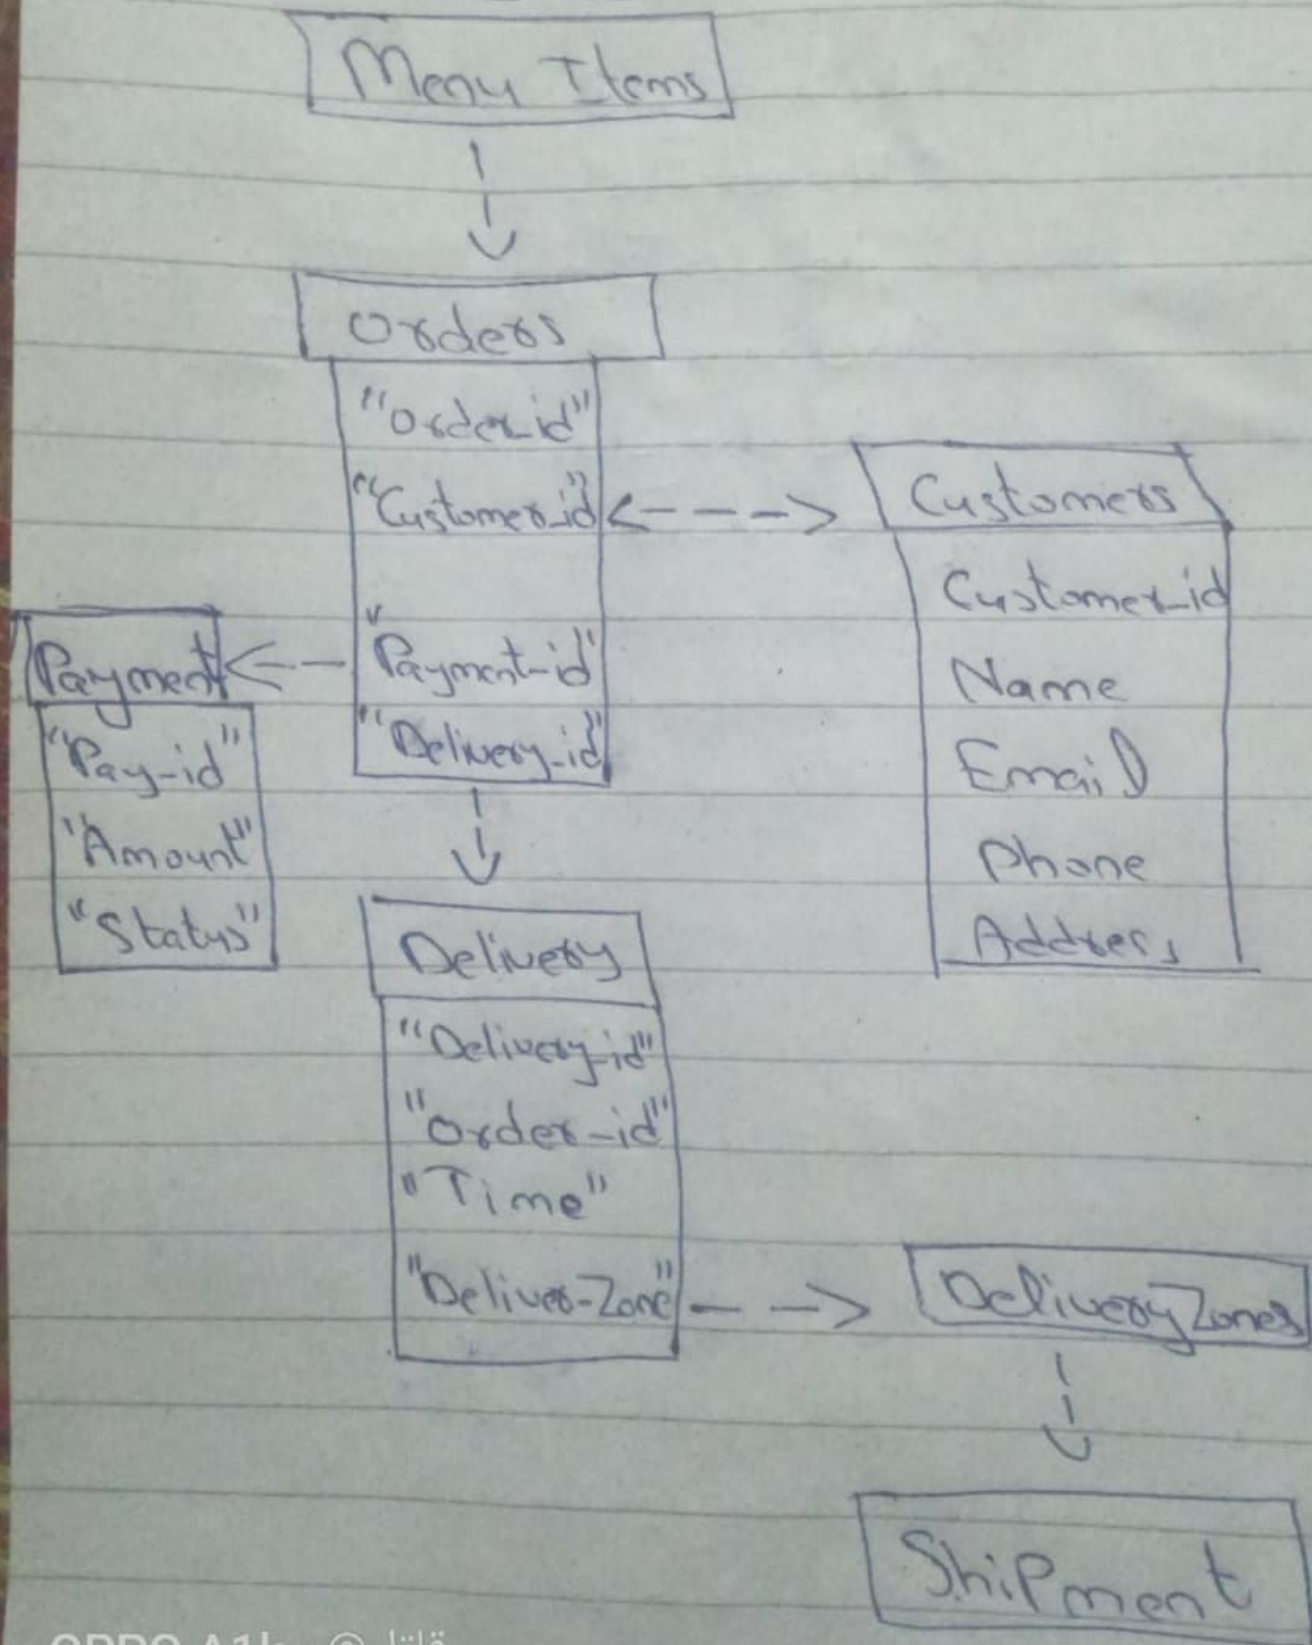 Menu Items
Orders
"Order_id"
"Customer_id"
"Payment-id"
"Delivery_id"
Customers
Customer_id
Name
Email
Phone
Address
Payment
"Pay-id"
"Amount"
"Status"
Delivery
"Delivery_id"
"Order-id"
"Time"
"Deliver-Zone"
Delivery Zones
Shipment